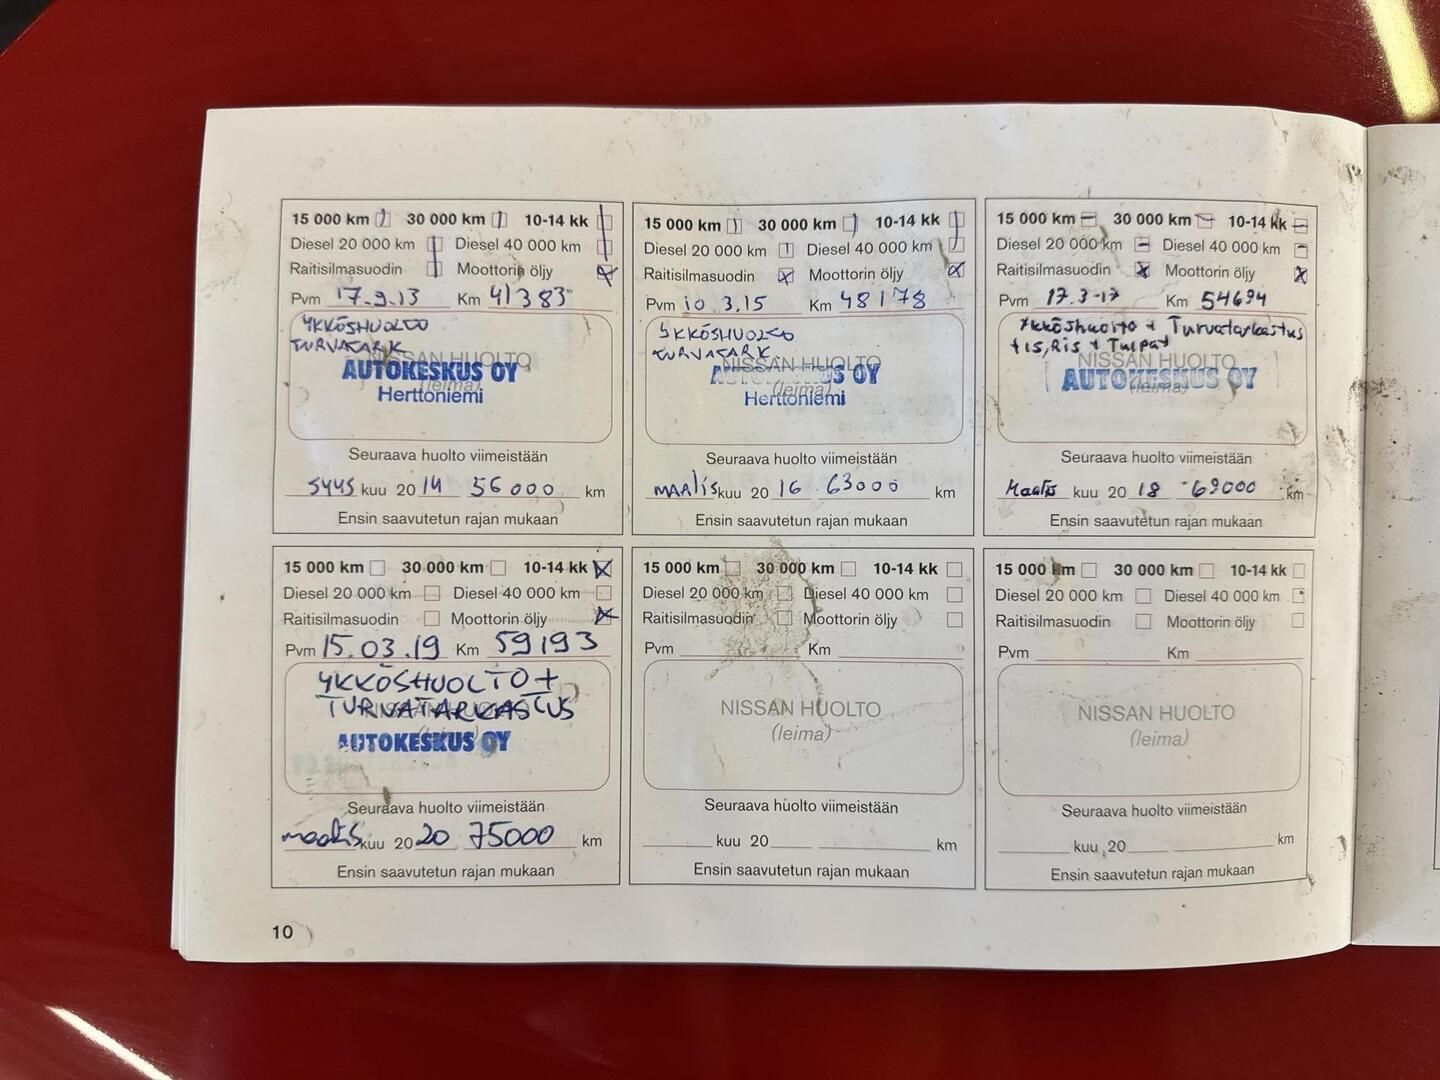 15 000 km 30 000 km 10-14 kk
Diesel 20 000 km Diesel 40 000 km
Raitisilmasuodin Moottorin öljy
Pvm 17.9.13 Km 41383
YKKÖSHUOLTO
TURVATARK
NISSAN HUOLTO
AUTOKESKUS OY
(leima)
Herttoniemi
Seuraava huolto viimeistään
SYYS kuu 2014 56000 km
Ensin saavutetun rajan mukaan
15 000 km 30 000 km 10-14 kk
Diesel 20 000 km Diesel 40 000 km
Raitisilmasuodin Moottorin öljy
Pvm 10 3.15 Km 48178
YKKÖSHUOLTO
TURVATARK
NISSAN HUOLTO
AUTOKESKUS OY
(leima)
Herttoniemi
Seuraava huolto viimeistään
MAALIS kuu 2016 63000 km
Ensin saavutetun rajan mukaan
15 000 km 30 000 km 10-14 kk
Diesel 20 000 km Diesel 40 000 km
Raitisilmasuodin Moottorin öljy
Pvm 17.3-17 Km 54694
Ykköshuolto + Turvatarkastus
+ IS, Ris + Tulpat
NISSAN HUOLTO
AUTOKESKUS OY
(leima)
Seuraava huolto viimeistään
Maalis kuu 2018 69000 km
Ensin saavutetun rajan mukaan
15 000 km 30 000 km 10-14 kk
Diesel 20 000 km Diesel 40 000 km
Raitisilmasuodin Moottorin öljy
Pvm 15.03.19 Km 59193
YKKÖSHUOLTO +
TURVATARKASTUS
NISSAN HUOLTO
(leima)
AUTOKESKUS OY
Seuraava huolto viimeistään
maalis kuu 2020 75000 km
Ensin saavutetun rajan mukaan
15 000 km 30 000 km 10-14 kk
Diesel 20 000 km Diesel 40 000 km
Raitisilmasuodin Moottorin öljy
Pvm Km
NISSAN HUOLTO
(leima)
Seuraava huolto viimeistään
kuu 20 km
Ensin saavutetun rajan mukaan
15 000 km 30 000 km 10-14 kk
Diesel 20 000 km Diesel 40 000 km
Raitisilmasuodin Moottorin öljy
Pvm Km
NISSAN HUOLTO
(leima)
Seuraava huolto viimeistään
kuu 20 km
Ensin saavutetun rajan mukaan
10